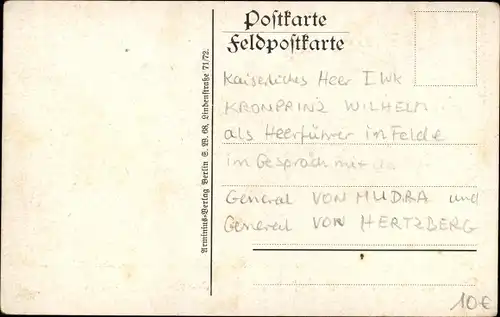 Postkarte
Feldpostkarte
Arminius-Verlag Berlin S. W. 68, Lindenstraße 71/72.
Kaiserliches Heer I WK
KRONPRINZ WILHELM
als Heerführer in Felde
im Gespräch mit
General VON MUDRA und
General VON HERTZBERG
10€